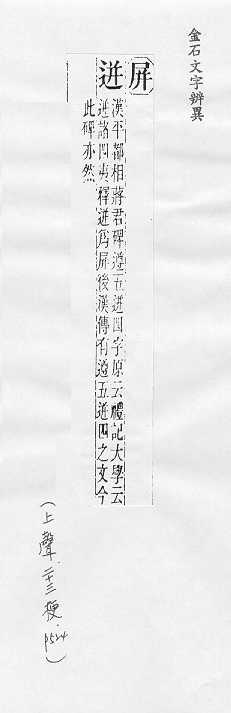 金石文字辨異
屏
迸
漢平都相蔣君碑遵五迸四字原云禮記大學云
迸諸四夷釋迸為屏後漢傳有遵五迸四之文今
此碑亦然
(上聲.二十三梗.p524)